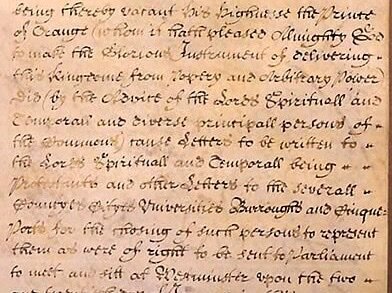 being thereby vacant His Highnesse the Prince
of Orange (whom it hath pleased Almighty God
to make the Glorious Instrument of delivering
this Kingdome from Popery and Arbitrary Power
Did (by the Advice of the Lords Spirituall and
Temporall and diverse principall persons of
the Commons) cause Letters to be written to
the Lords Spirituall and Temporall being
Protestants and other Letters to the severall
Countyes Cityes Universities Burroughs and Cinque
Ports for the chosing of such persons to represent
them as were of right to be sent to Parliament
to meet and sitt at Westminster upon the two